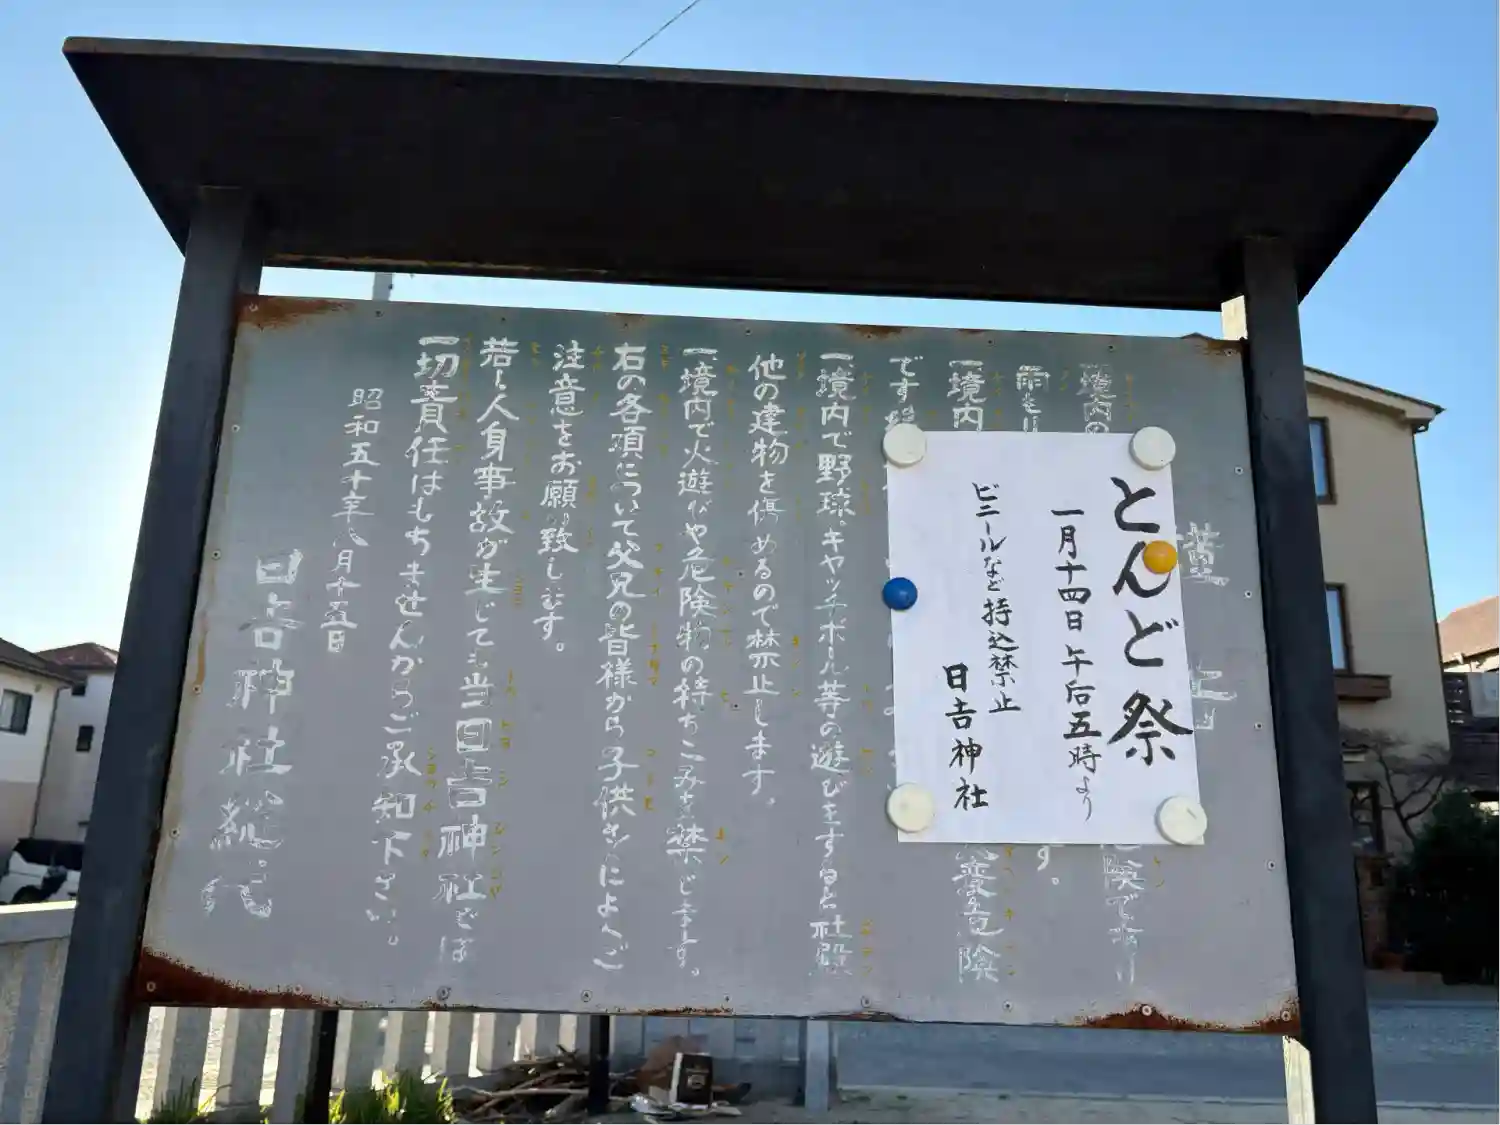 とんど祭
一月十四日 午后五時より
ビニールなど持込禁止
日吉神社
境内の
険であり
雨をり
す。
一、境内
変危険
です
一、境内で野球、キャッチボール等の遊びをすると社殿
他の建物を傷めるので禁止します。
一、境内で火遊びや危険物の持ちこみを禁じます。
右の各項について父兄の皆様から子供さんによくご
注意をお願い致します。
若し人身事故が生じても当日吉神社では
一切責任はもちませんからご承知下さい。
昭和五十年八月十五日
日吉神社総代